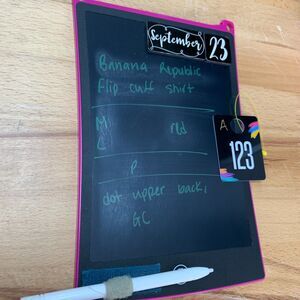 September 23
Banana Republic
Flip cuff shirt
M red
C
A
123
P
dot upper back,
GC